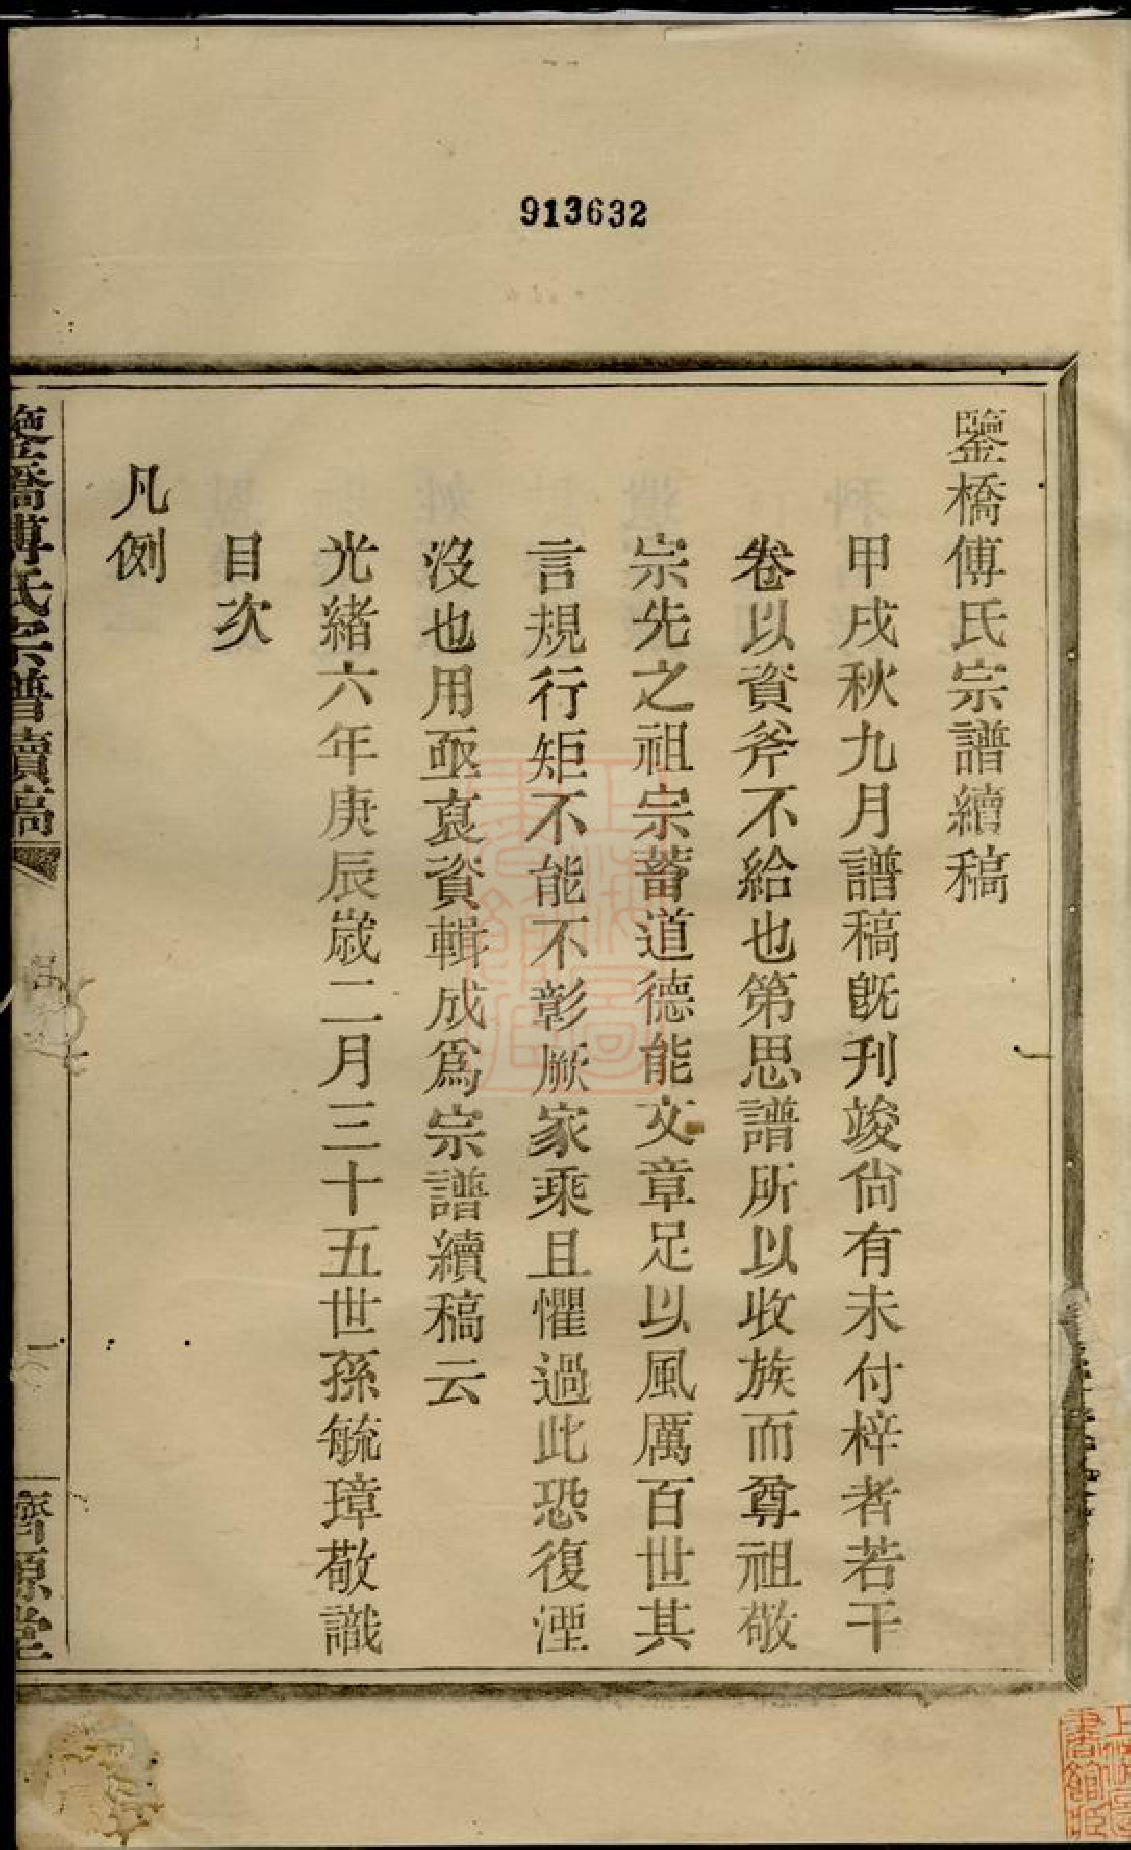 913632
鑒橋傅氏宗譜續稿
甲戌秋九月譜稿旣刋竣尙有未付梓者若干
卷以資斧不給也第思譜所以收族而尊祖敬
宗先之祖宗蓄道德能文章足以風厲百世其
言規行矩不能不彰厥家乘且懼過此恐復湮
沒也用亟裒資輯成爲宗譜續稿云
光緒六年庚辰歲二月三十五世孫毓璋敬識
目次
凡例
鑒橋傅氏宗譜續稿
一
濟源堂
上海圖書館藏